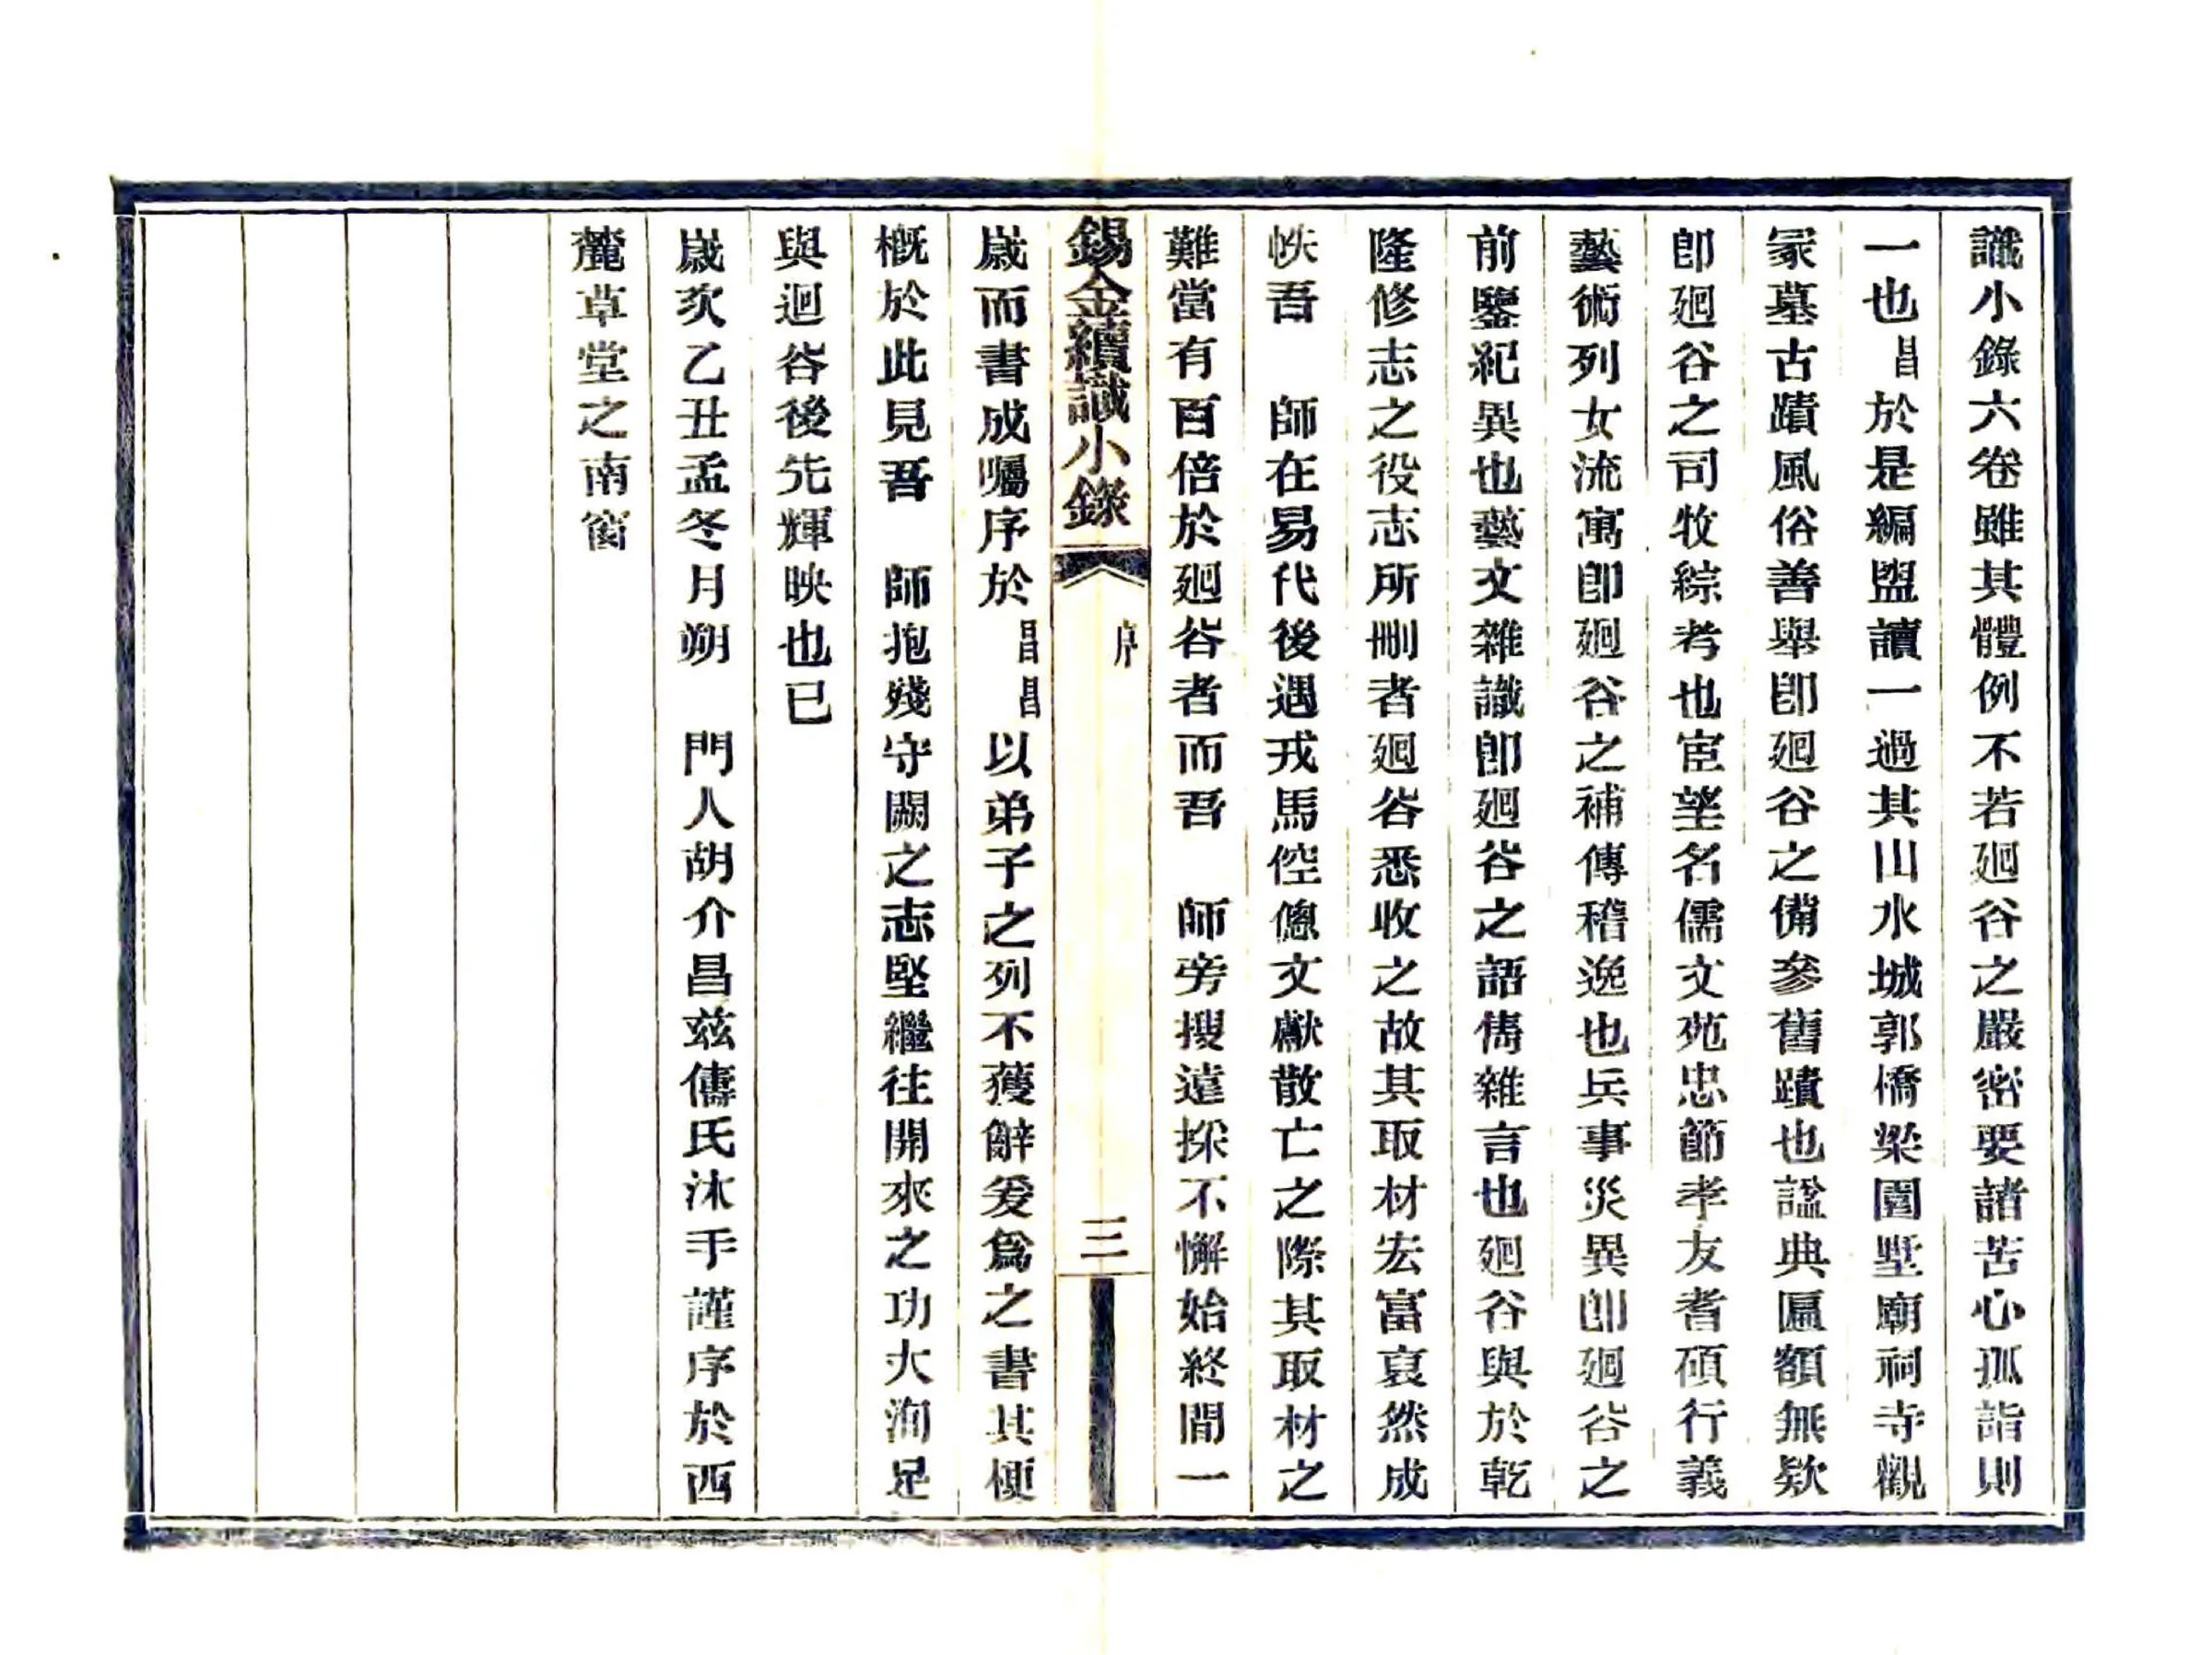 識小錄六卷雖其體例不若廻谷之嚴密要諸苦心孤詣則
一也昌於是編盥讀一過其山水城郭橋梁園墅廟祠寺觀
冡墓古蹟風俗善舉卽廻谷之備參舊蹟也諡典匾額無欵
卽廻谷之司牧綜考也宦望名儒文苑忠節孝友耆碩行義
藝術列女流寓卽廻谷之補傳稽逸也兵事災異卽廻谷之
前鑒紀異也藝文雜識卽廻谷之語雋雜言也廻谷與於乾
隆修志之役志所刪者廻谷悉收之故其取材宏富裒然成
帙吾　師在易代後遇戎馬倥傯文獻散亡之際其取材之
難當有百倍於廻谷者而吾　師旁搜遠採不懈始終間一
錫金續識小錄
序
三
歲而書成囑序於昌昌以弟子之列不獲辭爰爲之書其梗
槪於此見吾　師抱殘守闕之志堅繼往開來之功大洵足
與迴谷後先輝映也已
歲次乙丑孟冬月朔　門人胡介昌茲儔氏沐手謹序於西
麓草堂之南窗